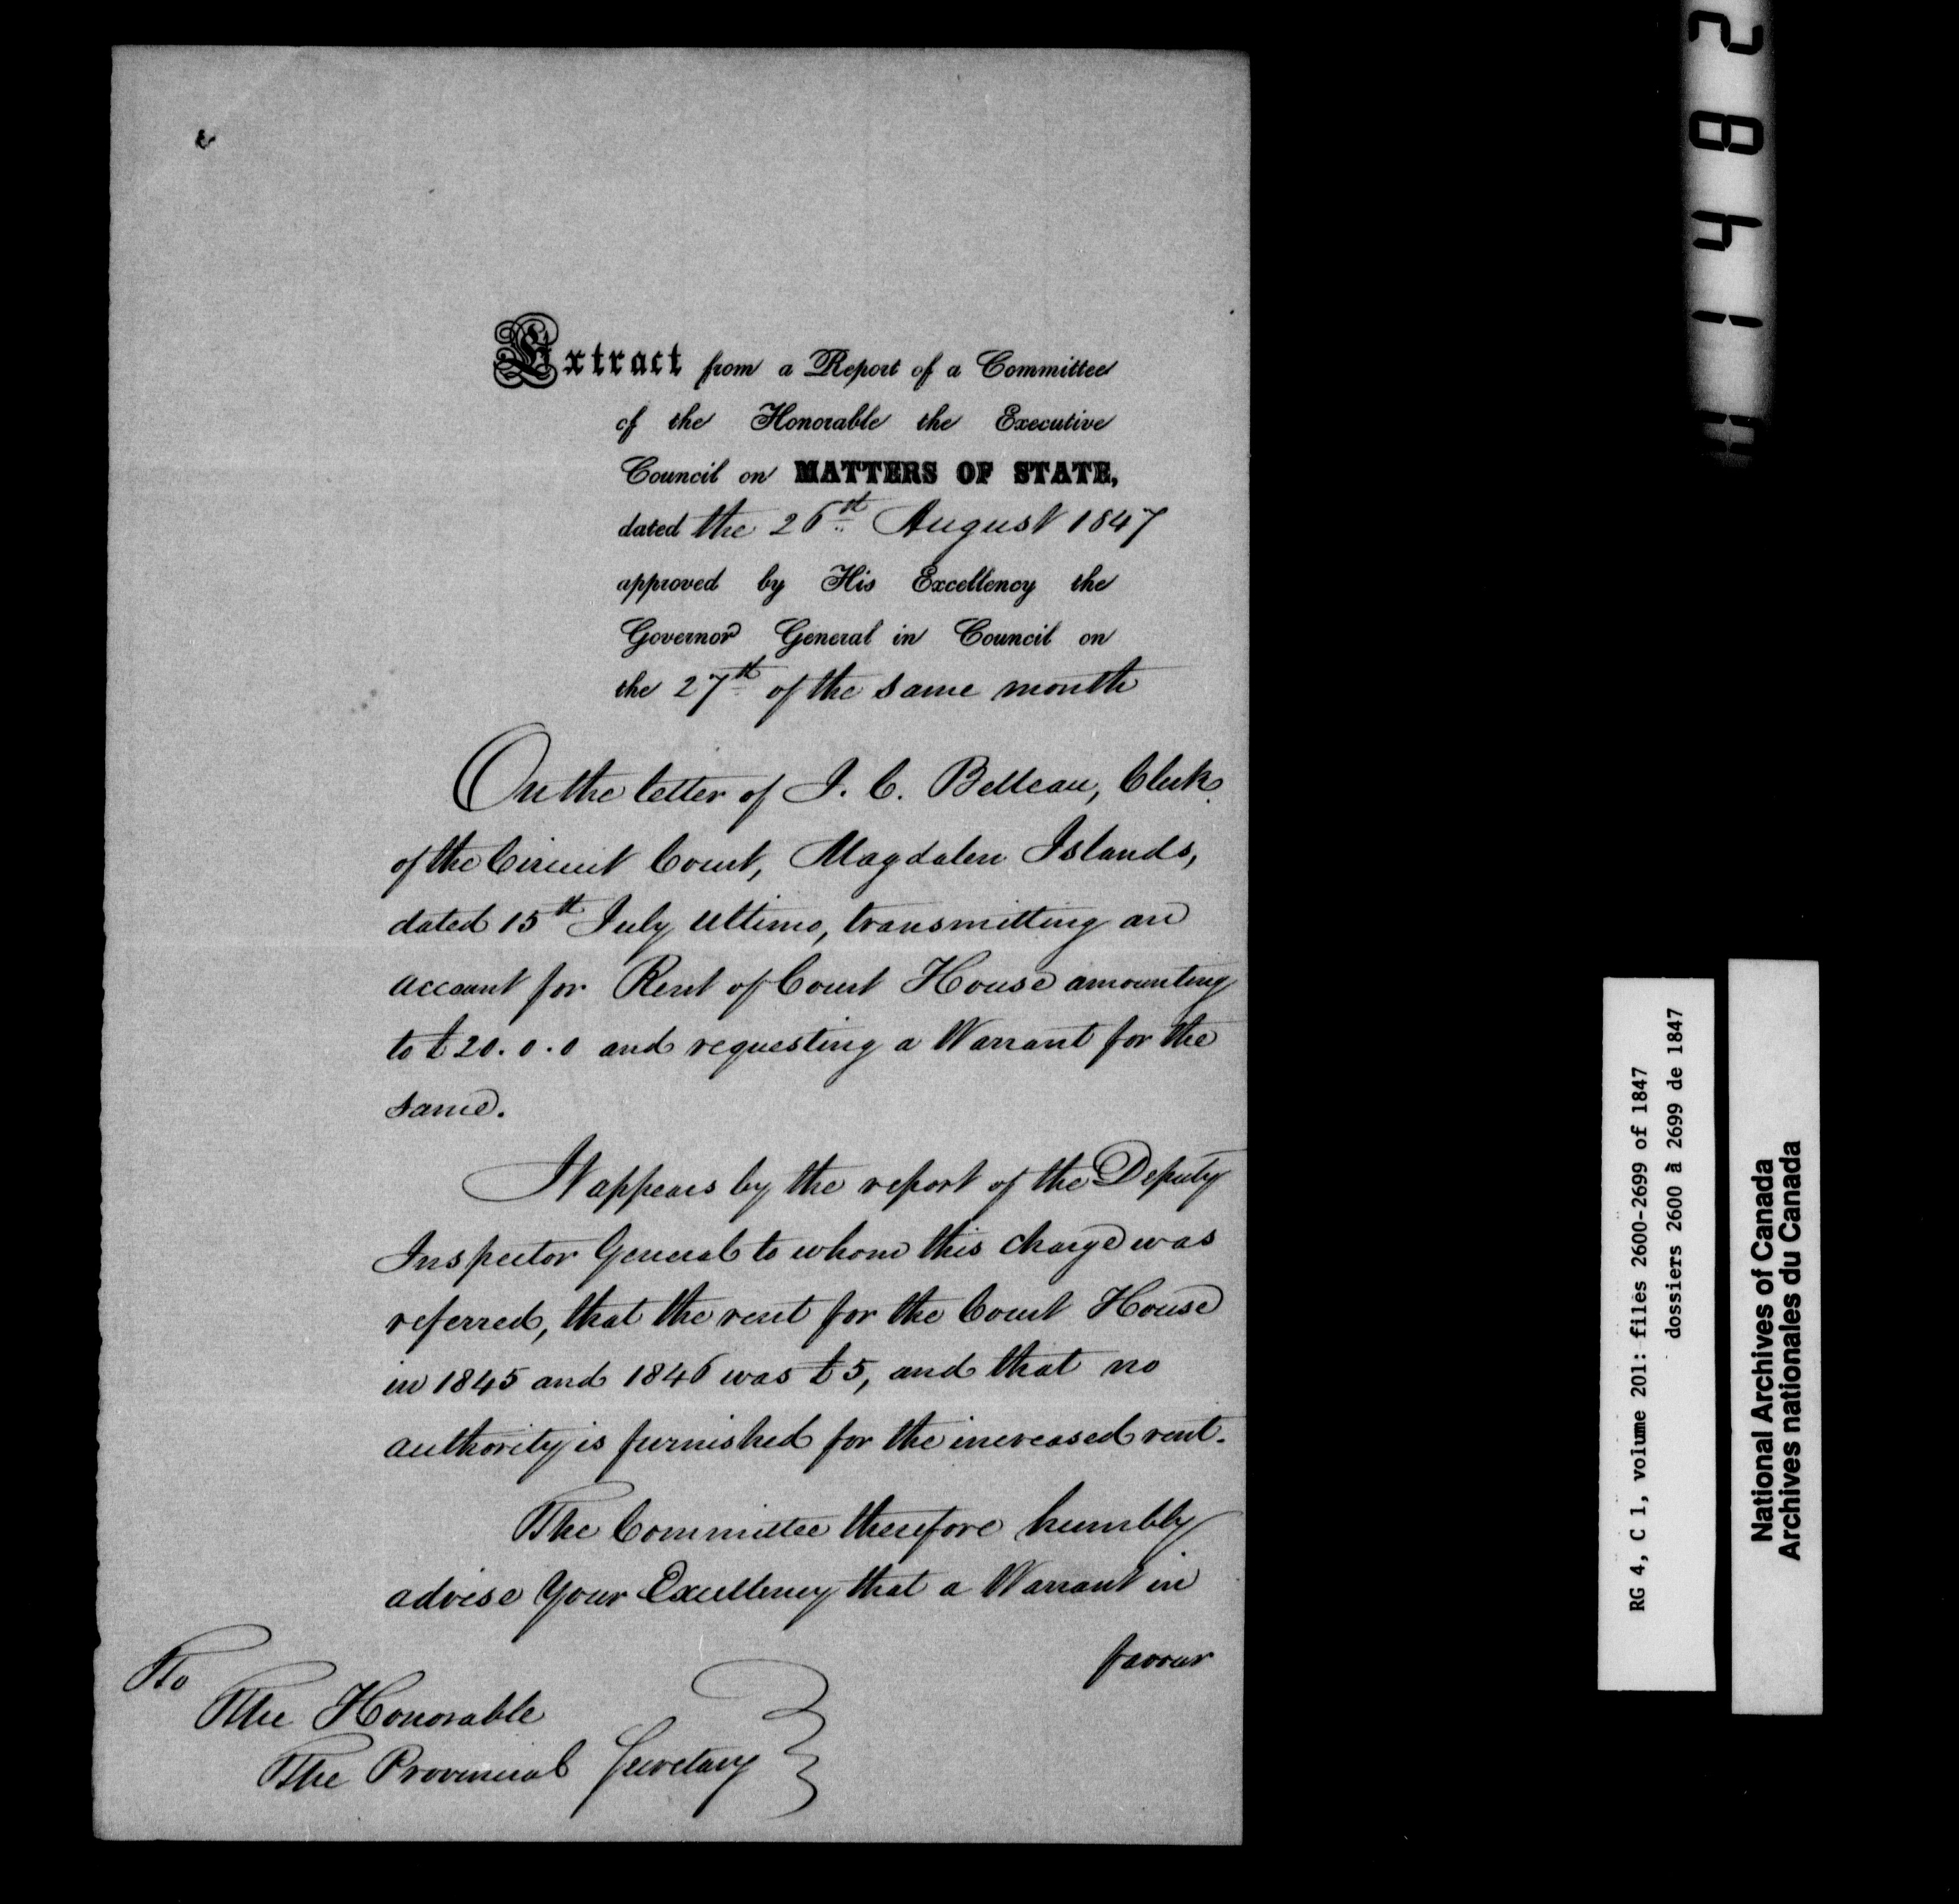 Extract from a Report of a Committee
of the Honorable the Executive
Council on MATTERS OF STATE,
dated the 26th August 1847
approved by His Excellency the
Governor General in Council on
the 27th of the same month
On the letter of J. C. Belleau, Clerk
of the Circuit Court, Magdalen Islands,
dated 15th July Ultimo, transmitting an
account for Rent of Court House amounting
to £20.0.0 and requesting a Warrant for the
same.
It appears by the report of the Deputy
Inspector General to whom this charge was
referred, that the rent for the Court House
in 1845 and 1846 was £5, and that no
authority is furnished for the increased rent.
The Committee therefore humbly
advise Your Excellency that a Warrant in
favour
To
The Honorable
The Provincial Secretary
2841
RG 4, C 1, volume 201: files 2600-2699 of 1847
dossiers 2600 à 2699 de 1847
National Archives of Canada
Archives nationales du Canada